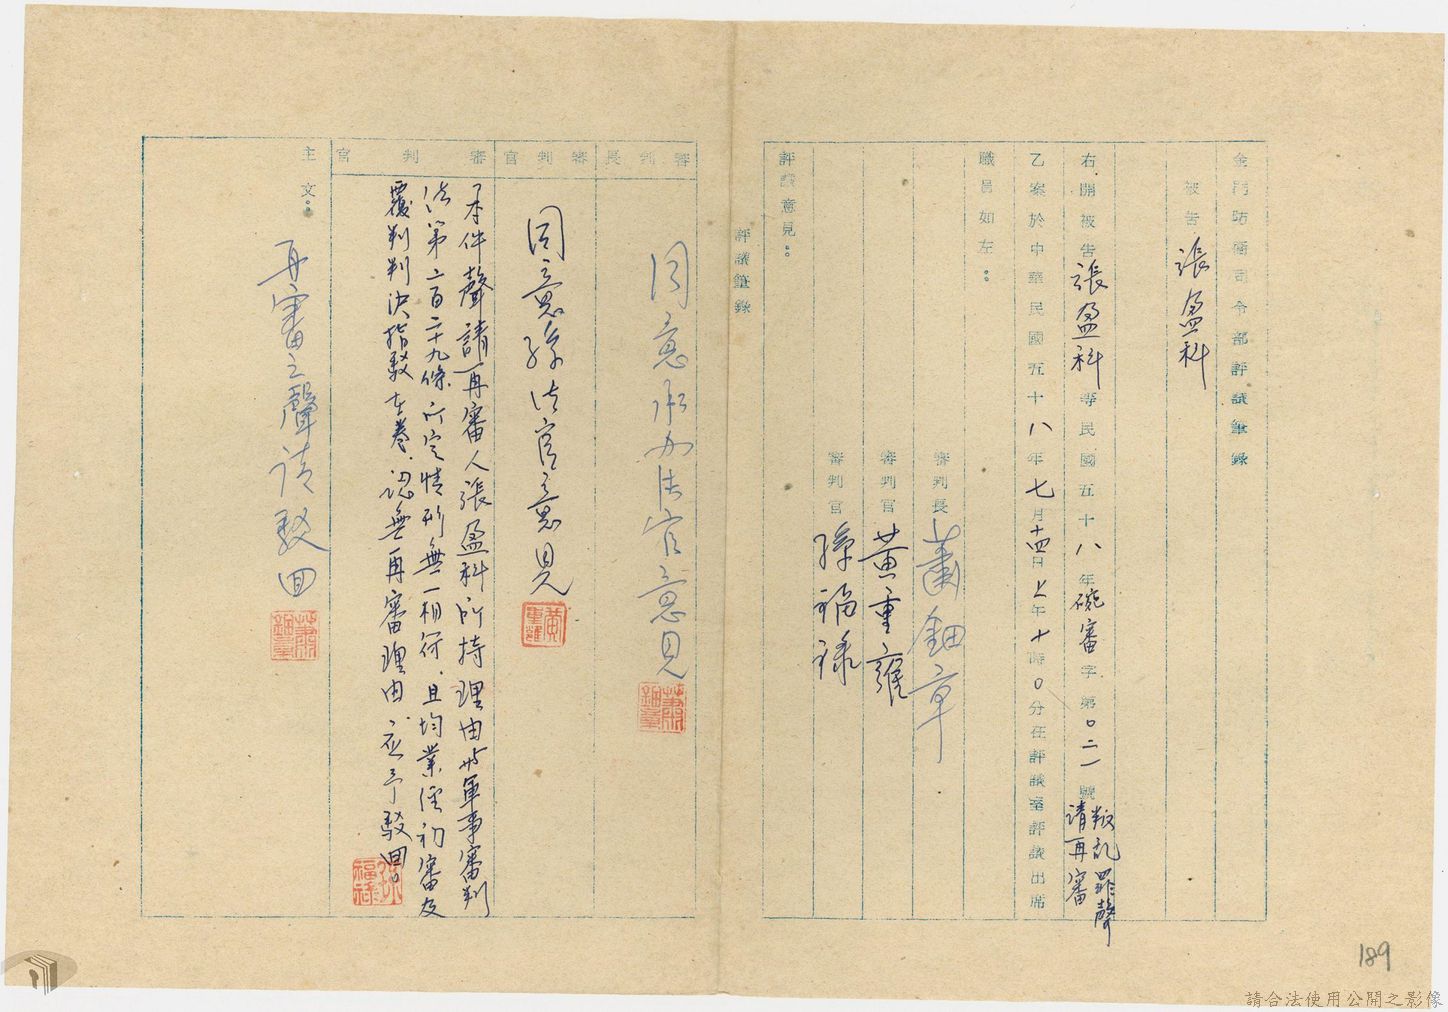 金門防衛司令部評議筆錄
被告張盈科
右開被告張盈科等民國五十八年碗審字第0二一號叛亂罪聲請再審
乙案於中華民國五十八年七月十四日上午十時0分在評議室評議出席
職員如左：
審判長蕭鈿章
審判官黃重雍
審判官孫福祿
評議意見：
評議筆錄
審判長
同意承办法官意見
審判官
同意孫法官意見
黃重雍
審判官
本件聲請再審人張盈科所持理由与軍事審判
法第二百二十九條所定情形無一相符，且均業經初審及
覆判判決指駁在卷，認無再審理由，应予駁回。
孫福祿
主文：
再審之聲請駁回
189
請合法使用公開之影像